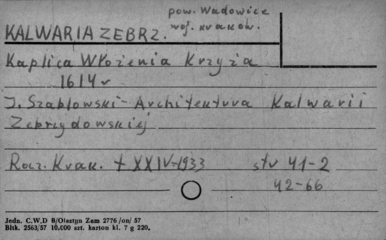 pow. Wadowice
KALWARIA ZEBRZ. woj. Kraków.
Kaplica Włożenia Krzyża
1614 r
J. Szabłowski - Architektura Kalwarii
Zebrzydowskiej
Rocz. Krak. t XXIV-1933 str 41-2
42-66
Jedn. C.W.D 8/Olsztyn Zam 2776 /on/ 57
Bltk. 2563/57 10.000 szt. karton kl. 7 g 220.